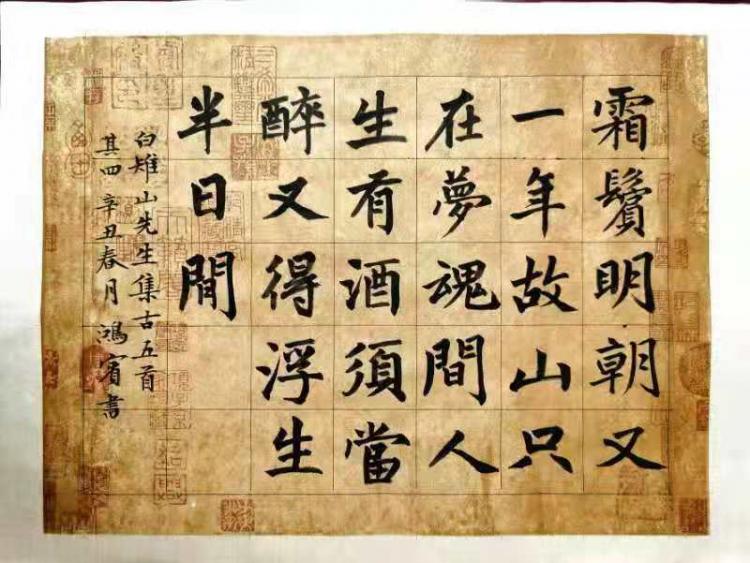 霜鬢明朝又
一年故山只
在夢魂間人
生有酒須當
醉又得浮生
半日閒
白雉山先生集古五首
其四 辛丑春月 鴻賓書